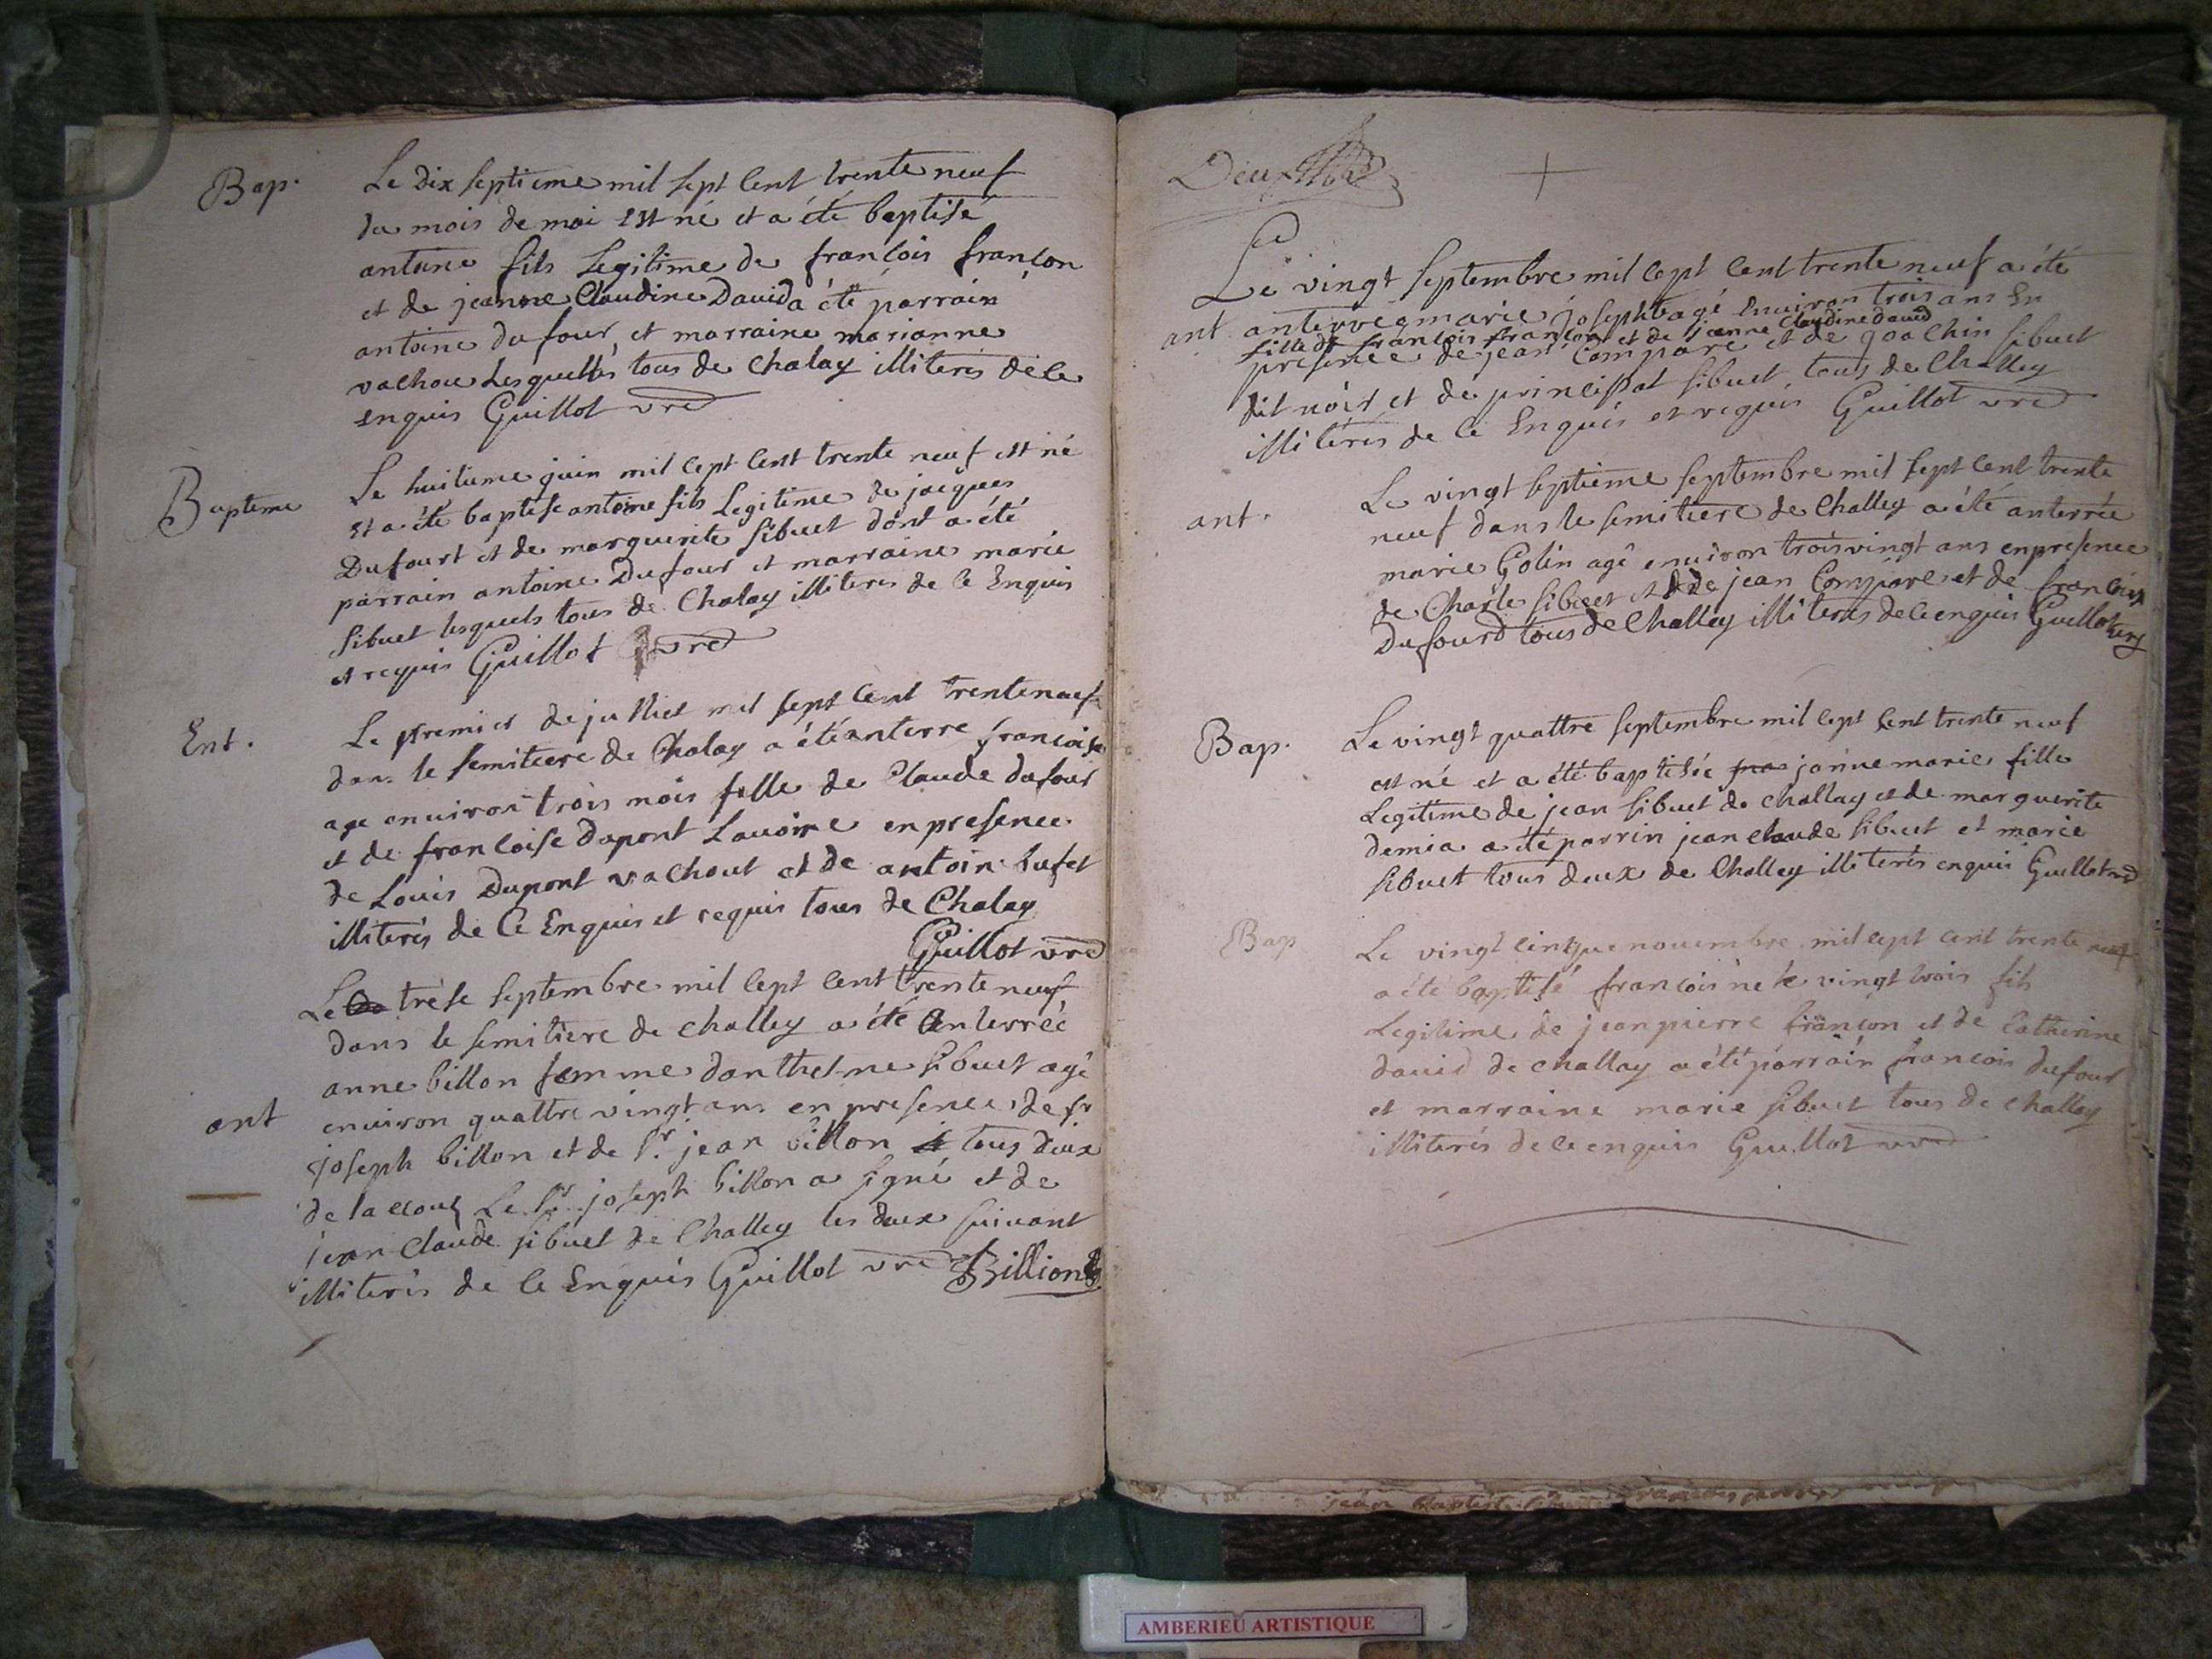 Bap. Le dix septieme mil sept cent trente neuf
du mois de mai est né et a été baptisé
antoine fils Legitime de francois françon
et de jeanne Claudine David a été parrain
antoine dufour, et marraine marianne
vachou Lesquelles tous de Chalay illiteris de ce
enquis Guillot vre
Bapteme Le huitieme juin mil cept cent trente neuf est né
et a été baptise antoine fils Legitime de jacques
Dufourt et de marguerite sibuet dont a été
parrain antoine Dufour et marraine marie
sibuet lesquels tous de Chalay illiteris de ce Enquis
et requis Guillot vre
Ent. Le premier de juilliet mil sept cent trente neuf
dans le semitiere de Chalay a été anterre francoise
age environ trois mois fille de Claude dufour
et de francoise dupont Lavoine en presence
de Louis Dupont vachout et de antoin bufet
illiteris de ce Enquis et requis tous de Chalay
Guillot vre
Le trese septembre mil cept cent trente neuf
dans le semitiere de challey a été anterréé
anne billon femme danthelme sibuet agé
ant environ quattre vingt ans en presence de sr
joseph billon et de sr. jean billon tous deux
de la Le sr. joseph billon a signé et de
jean claude sibuet de Challey les deux suivant
illiteris de ce Enquis Guillot vre Billion
Deux
Le vingt septembre mil cept cent trente neuf a été
ant anterree marie joseph agé Environ trois ans En
fille de francois françon et de jeanne Claudine david
presence de jean Compare et de joachin sibuet
dit noir et de principat sibuet tous de Challey
illiteris de ce Enquis et requis Guillot vre
ant. Le vingt septieme septembre mil sept cent trente
neuf dans le semitiere de Challey a été anterrée
marie Golin agé environ trois vingt ans en presence
de Charle sibuet et de jean Compare et de francois
Dufourd tous de Challey illiteris de ce enquis Guillot vre
Bap. Le vingt quattre septembre mil cept cent trente neuf
est né et a été baptisée janne marie fille
Legitime de jean sibuet de challay et de marguerite
demia a été parrin jean claude sibuet et marie
sibuet tous deux de Challey illiteris enquis Guillot vre
Bap Le vingt cinque novembre mil cept cent trente neuf
a été baptisé francois né le vingt trois fils
Legitime de jean pierre françon et de Catherine
david de challay a été parrain francois dufour
et marraine marie sibuet tous de challay
illiteris de ce enquis Guillot vre
AMBERIEU ARTISTIQUE